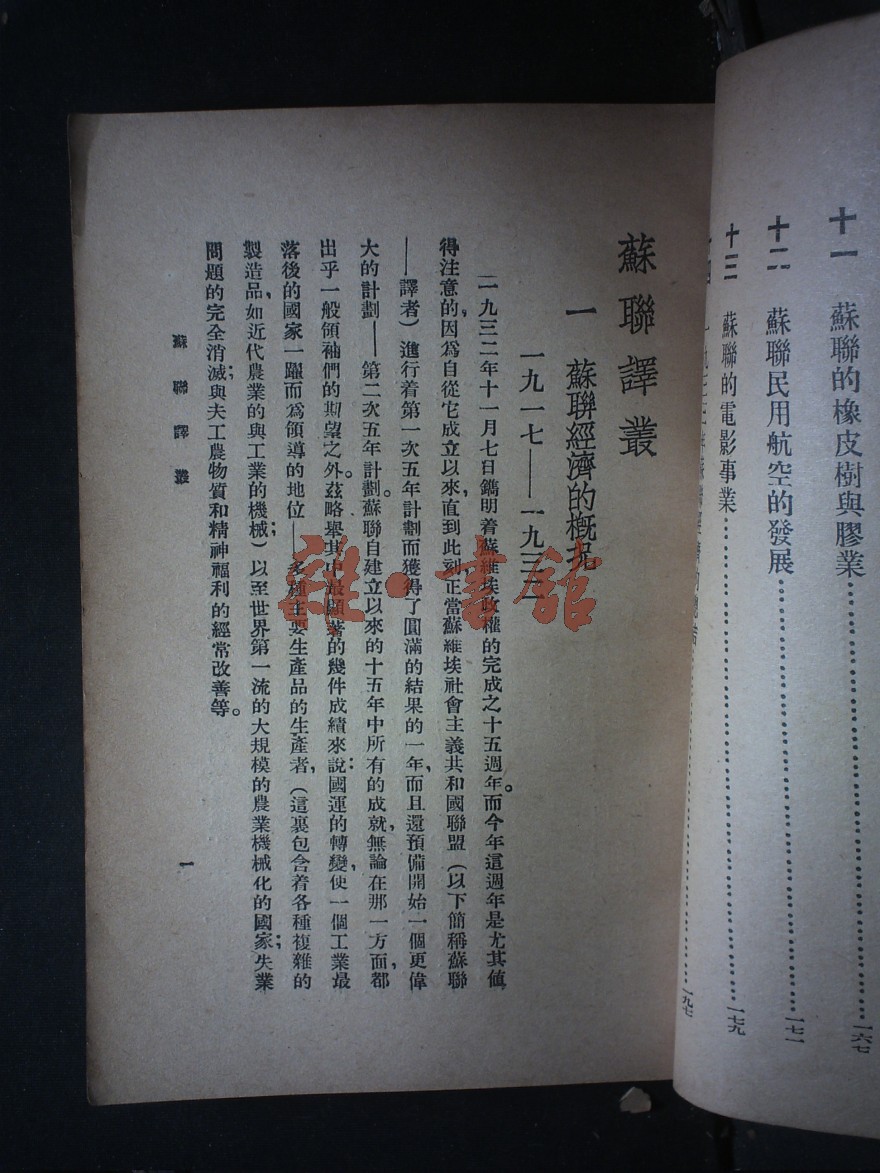 十一 蘇聯的橡皮樹與膠業……一六七
十二 蘇聯民用航空的發展……一七一
十三 蘇聯的電影事業……一七九
一九七
蘇聯譯叢
一 蘇聯經濟的概況
一九一七——一九三二
一九三二年十一月七日鐫明着蘇維埃政權的完成之十五週年。而今年這週年是尤其値
得注意的,因爲自從它成立以來,直到此刻,正當蘇維埃社會主義共和國聯盟(以下簡稱蘇聯
——譯者)進行着第一次五年計劃而獲得了圓滿的結果的一年,而且還預備開始一個更偉
大的計劃——第二次五年計劃。蘇聯自建立以來的十五年中所有的成就,無論在那一方面都
出乎一般領袖們的期望之外。茲略舉其中最顯著的幾件成績來說:國運的轉變,使一個工業最
落後的國家一躍而爲領導的地位——多種主要生產品的生產者,(這裏包含着各種複雜的
製造品,如近代農業的與工業的機械)以至世界第一流的大規模的農業機械化的國家;失業
問題的完全消滅;與夫工農物質和精神福利的經常改善等。
蘇聯譯叢
一
雜·書館